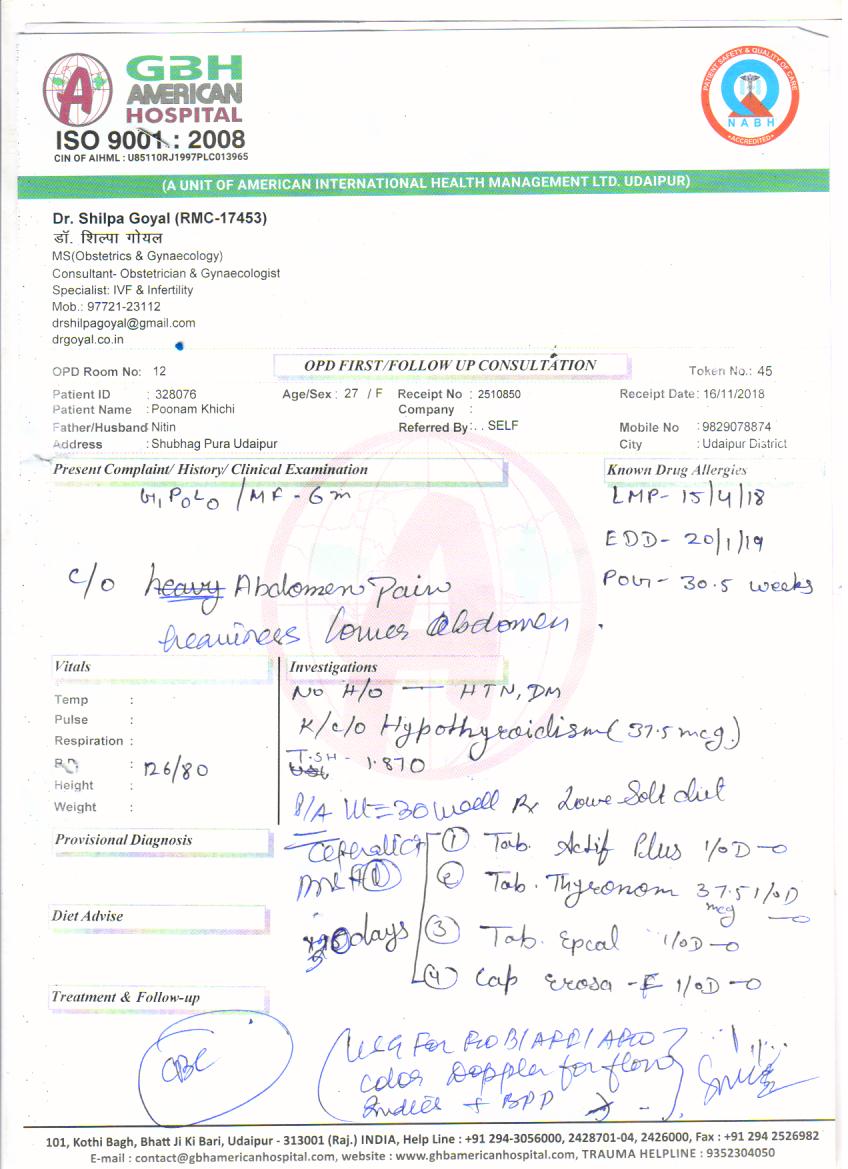 GBH
AMERICAN
HOSPITAL
ISO 9001 : 2008
CIN OF AIHML : U85110RJ1997PLC013965
PATIENT SAFETY & QUALITY OF CARE
NABH
ACCREDITED
(A UNIT OF AMERICAN INTERNATIONAL HEALTH MANAGEMENT LTD. UDAIPUR)
Dr. Shilpa Goyal (RMC-17453)
डॉ. शिल्पा गोयल
MS(Obstetrics & Gynaecology)
Consultant- Obstetrician & Gynaecologist
Specialist: IVF & Infertility
Mob.: 97721-23112
drshilpagoyal@gmail.com
drgoyal.co.in
OPD Room No: 12 OPD FIRST/FOLLOW UP CONSULTATION Token No.: 45
Patient ID : 328076 Age/Sex : 27 / F Receipt No : 2510850 Receipt Date: 16/11/2018
Patient Name : Poonam Khichi Company :
Father/Husband Nitin Referred By : . . SELF Mobile No : 9829078874
Address : Shubhag Pura Udaipur City : Udaipur District
Present Complaint/ History/ Clinical Examination Known Drug Allergies
G1 P0 L0 / MF - 6m LMP- 15/4/18
EDD- 20/1/19
c/o heavy Abdomen Pain POG- 30.5 weeks
heaviness lower abdomen .
Vitals Investigations
Temp : No H/o — HTN, DM
Pulse :
Respiration : K/c/o Hypothyroidism (37.5 mcg)
B.P. : 126/80 T.SH - 1.870
Height :
Weight : P/A Ut = 30 well Rx Lowe Solt diet
Provisional Diagnosis
① Tab. Actif Plus 1/OD
② Tab. Thyronom 37.5 1/OD
mcg
Diet Advise
days ③ Tab. Epcal 1/OD
④ Cap Erosa -F 1/OD
Treatment & Follow-up
CBC
USG For
color Doppler for flow
Indices + BPP
101, Kothi Bagh, Bhatt Ji Ki Bari, Udaipur - 313001 (Raj.) INDIA, Help Line : +91 294-3056000, 2428701-04, 2426000, Fax : +91 294 2526982
E-mail : contact@gbhamericanhospital.com, website : www.gbhamericanhospital.com, TRAUMA HELPLINE : 9352304050